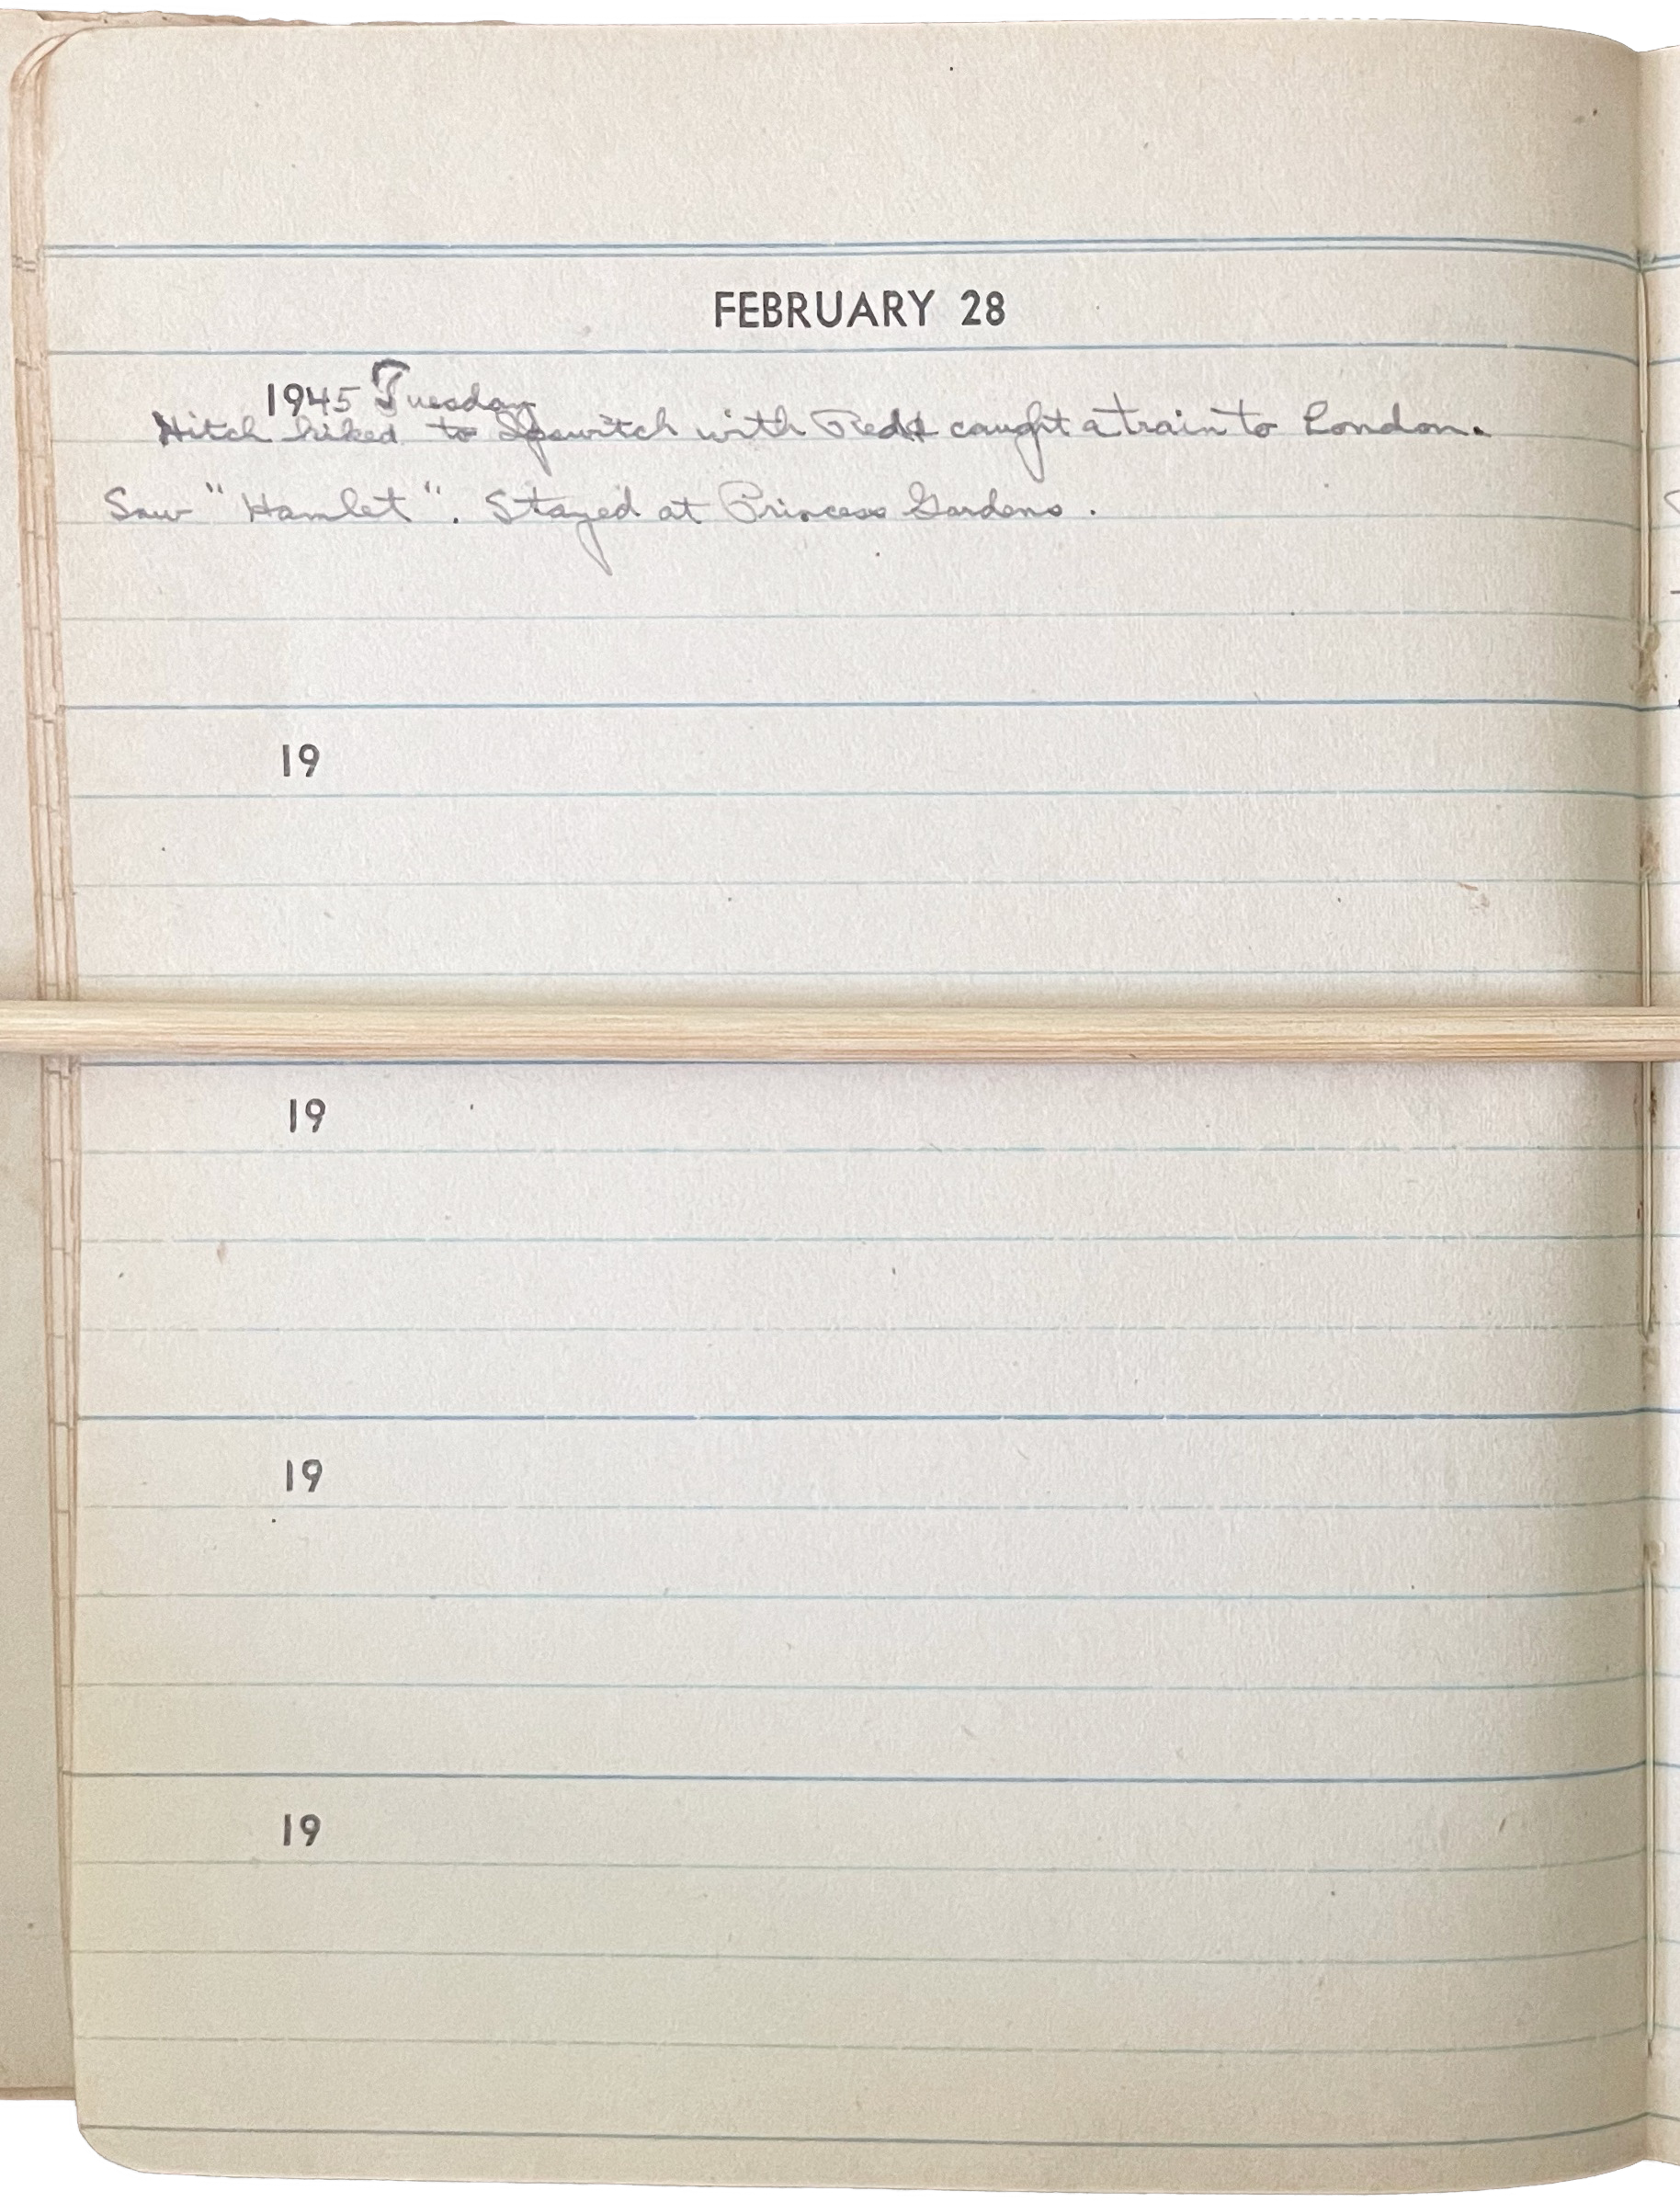 FEBRUARY 28
1945 Tuesday
Hitch hiked to Ipswitch with Red & caught a train to London.
Saw "Hamlet". Stayed at Princess Gardens.
19
19
19
19